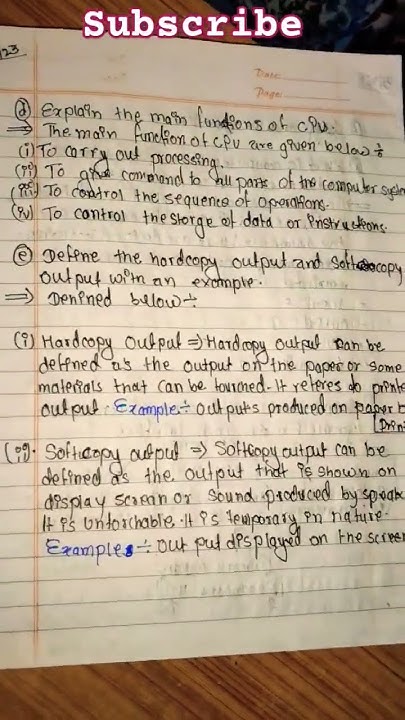 Subscribe
23
Date:
Page:
(d) Explain the main functions of CPU.
⇒ The main function of CPU are given below ÷
(i) To carry out processing.
(ii) To give command to all parts of the computer system
(iii) To control the sequence of operations.
(iv) To control the storge of data or instructions.
(e) Define the hardcopy output and Softcopy
output with an example.
⇒ Denined below ÷
(i) Hardcopy output ⇒ Hardcopy output can be
defined as the output on the paper or some
materials that can be tourned. It referes to printe
output. Example ÷ outputs produced on paper b
(ii). Softcopy output ⇒ Softcopy output can be
defined as the output that is shown on
display screan or sound produced by speak
It is untorchable. It is temporary in nature.
Example ÷ out put displayed on the screen